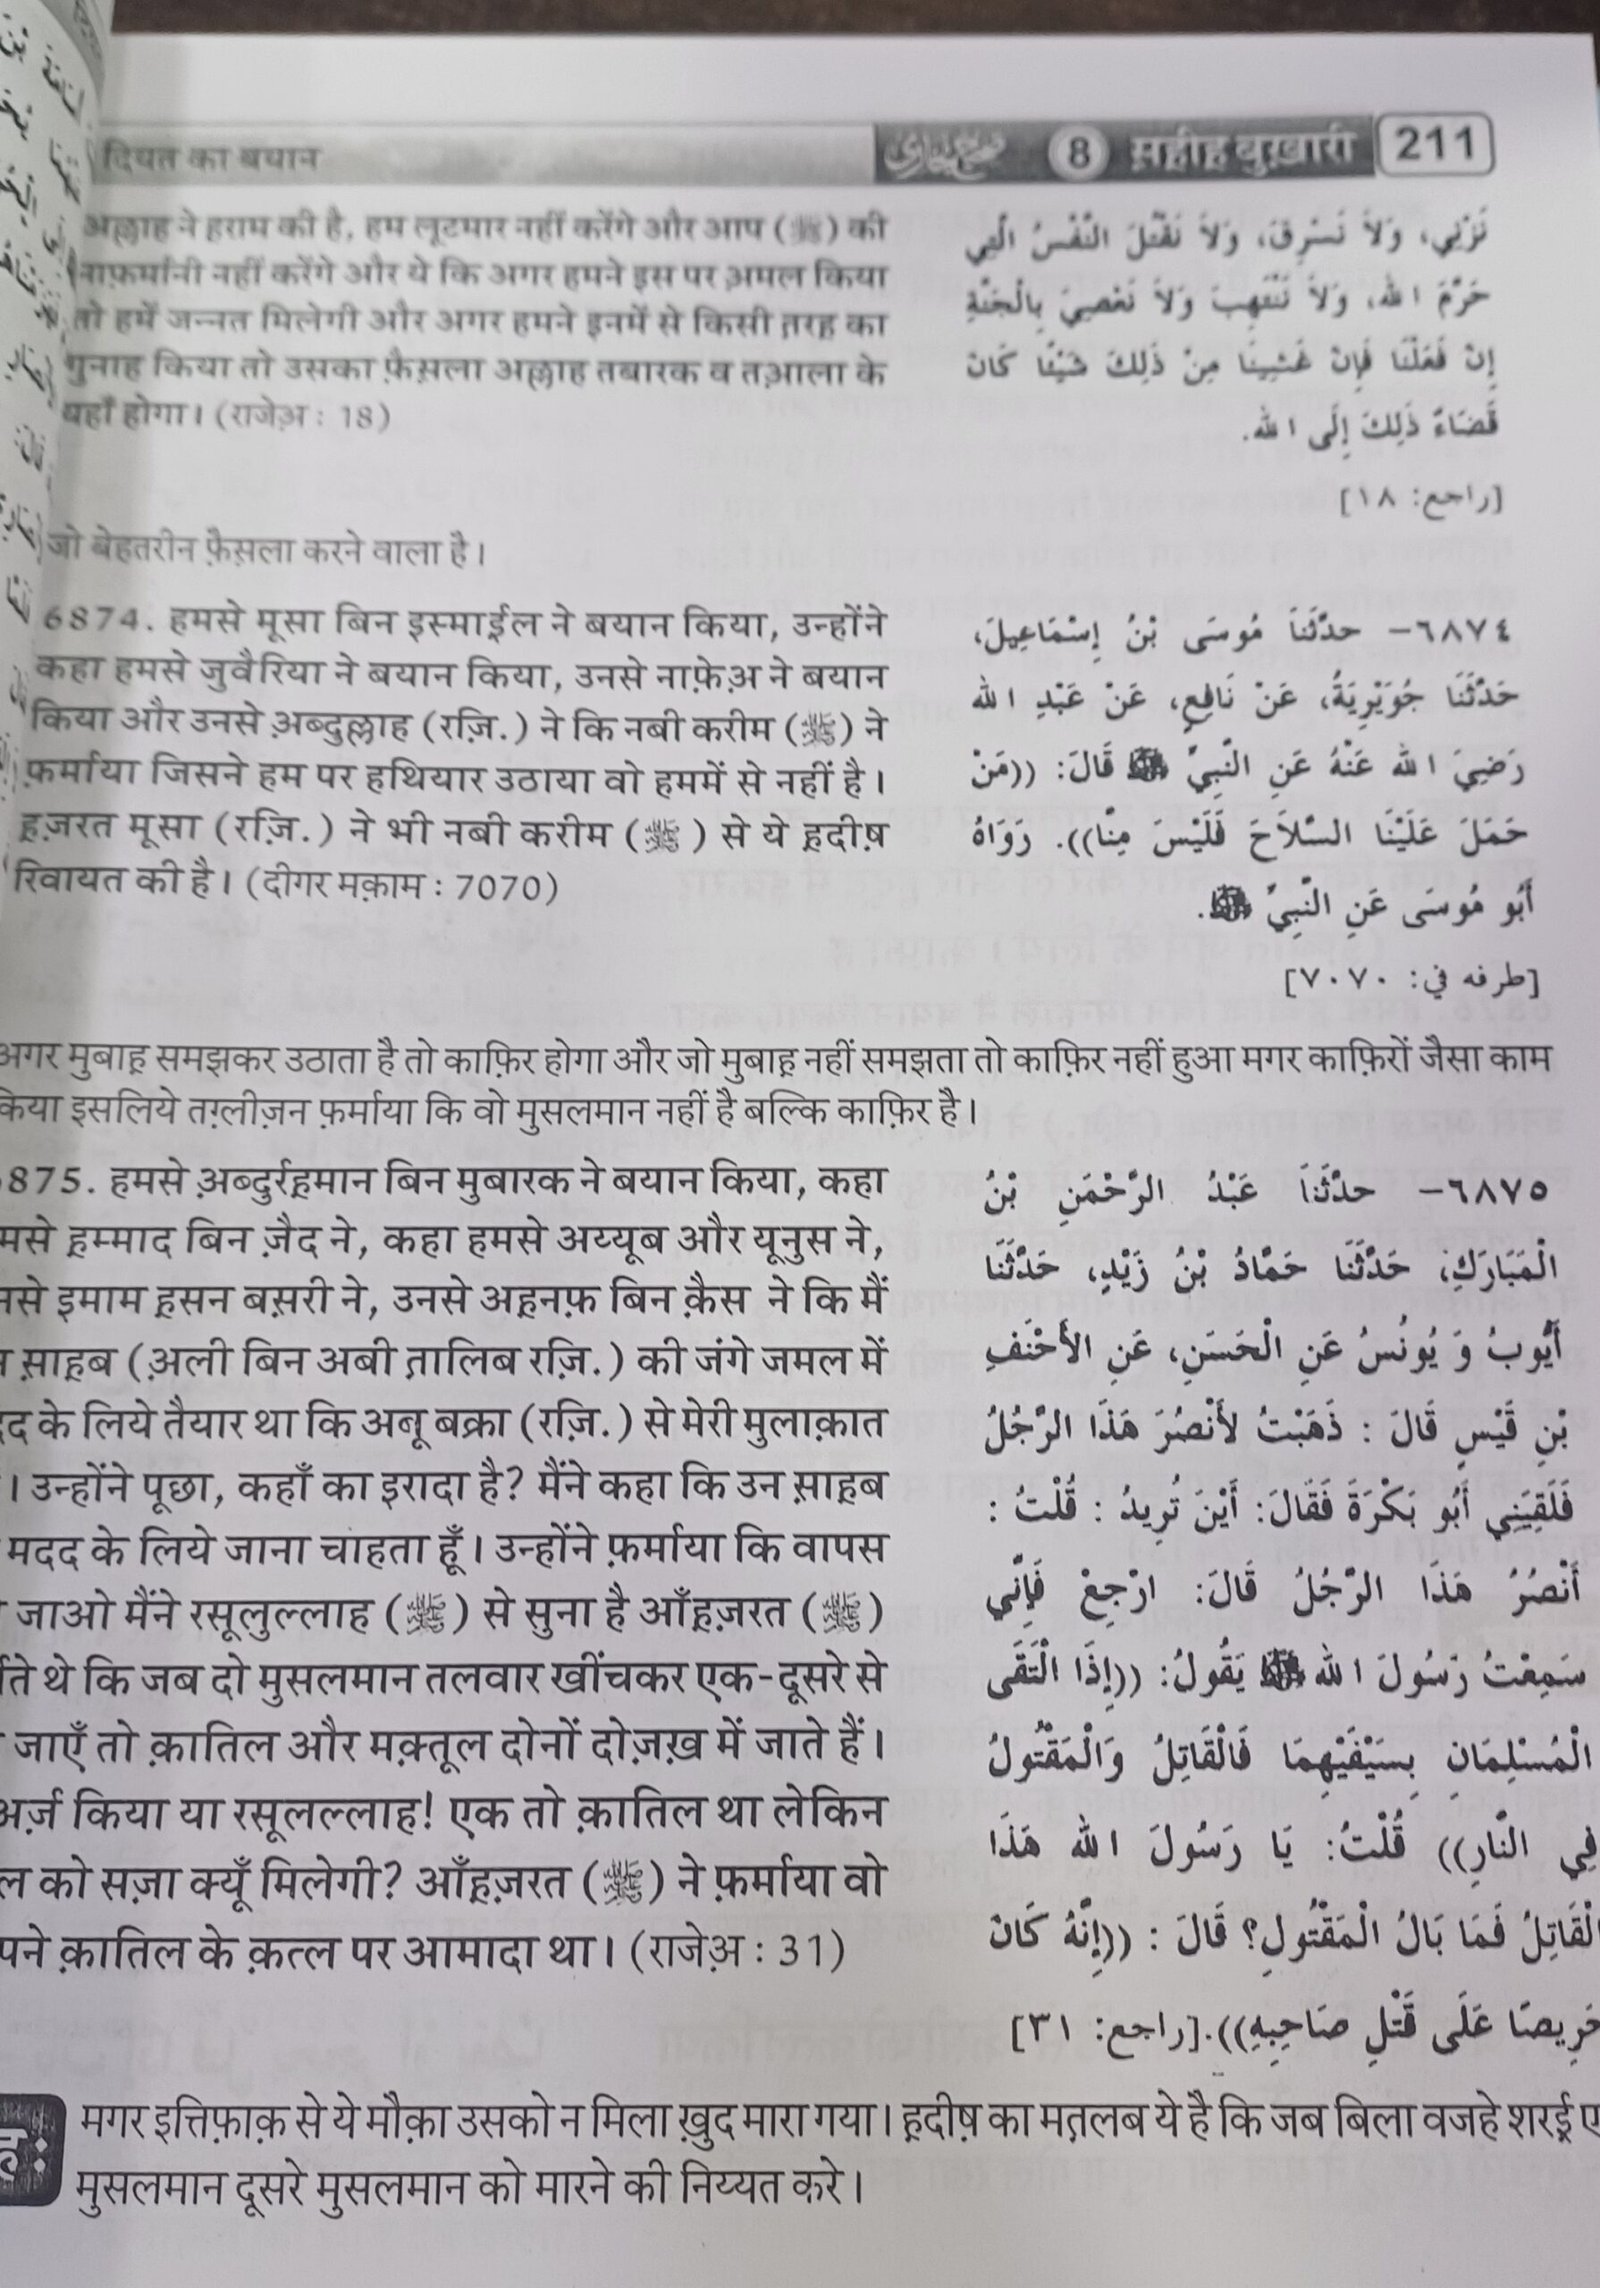 दियत का बयान
8 सहीह बुख़ारी 211
अल्लाह ने हराम की है, हम लूटमार नहीं करेंगे और आप (ﷺ) की
नाफ़र्मानी नहीं करेंगे और ये कि अगर हमने इस पर अ़मल किया
तो हमें जन्नत मिलेगी और अगर हमने इनमें से किसी त़रह का
गुनाह किया तो उसका फ़ैस़ला अल्लाह तबारक व तआ़ला के
यहाँ होगा। (राजेअ़ : 18)
نَزْنِي، وَلاَ نَسْرِقَ، وَلاَ نَقْتُلَ النَّفْسَ الَّتِي
حَرَّمَ الله، وَلاَ نَنْتَهِبَ وَلاَ نَعْصِيَ بِالْجَنَّةِ
إِنْ فَعَلْنَا فَإِنْ غَشِينَا مِنْ ذَلِكَ شَيْئًا كَانَ
قَضَاءُ ذَلِكَ إِلَى الله.
[راجع: ١٨]
जो बेहतरीन फ़ैस़ला करने वाला है।
6874. हमसे मूसा बिन इस्माईल ने बयान किया, उन्होंने
कहा हमसे जुवैरिया ने बयान किया, उनसे नाफ़ेअ़ ने बयान
किया और उनसे अ़ब्दुल्लाह (रज़ि.) ने कि नबी करीम (ﷺ) ने
फ़र्माया जिसने हम पर हथियार उठाया वो हममें से नहीं है।
ह़ज़रत मूसा (रज़ि.) ने भी नबी करीम (ﷺ) से ये ह़दीष़
रिवायत की है। (दीगर मक़ाम : 7070)
٦٨٧٤– حدَّثَنَا مُوسَى بْنُ إِسْمَاعِيلَ،
حَدَّثَنَا جُوَيْرِيَةُ، عَنْ نَافِعٍ، عَنْ عَبْدِ الله
رَضِيَ الله عَنْهُ عَنِ النَّبِيِّ ﷺ قَالَ: ((مَنْ
حَمَلَ عَلَيْنَا السِّلاَحَ فَلَيْسَ مِنَّا)). رَوَاهُ
أَبُو مُوسَى عَنِ النَّبِيِّ ﷺ.
[طرفه في: ٧٠٧٠]
अगर मुबाह़ समझकर उठाता है तो काफ़िर होगा और जो मुबाह़ नहीं समझता तो काफ़िर नहीं हुआ मगर काफ़िरों जैसा काम
किया इसलिये तग़्लीज़न फ़र्माया कि वो मुसलमान नहीं है बल्कि काफ़िर है।
875. हमसे अ़ब्दुर्रह़मान बिन मुबारक ने बयान किया, कहा
मसे ह़म्माद बिन ज़ैद ने, कहा हमसे अय्यूब और यूनुस ने,
नसे इमाम ह़सन बस़री ने, उनसे अह़नफ़ बिन क़ैस ने कि मैं
स़ाह़ब (अ़ली बिन अबी त़ालिब रज़ि.) की जंगे जमल में
दद के लिये तैयार था कि अबू बक्रा (रज़ि.) से मेरी मुलाक़ात
। उन्होंने पूछा, कहाँ का इरादा है? मैंने कहा कि उन स़ाह़ब
मदद के लिये जाना चाहता हूँ। उन्होंने फ़र्माया कि वापस
जाओ मैंने रसूलुल्लाह (ﷺ) से सुना है आँह़ज़रत (ﷺ)
ते थे कि जब दो मुसलमान तलवार खींचकर एक-दूसरे से
जाएँ तो क़ातिल और मक़्तूल दोनों दोज़ख़ में जाते हैं।
अ़र्ज़ किया या रसूलल्लाह! एक तो क़ातिल था लेकिन
ल को सज़ा क्यूँ मिलेगी? आँह़ज़रत (ﷺ) ने फ़र्माया वो
पने क़ातिल के क़त्ल पर आमादा था। (राजेअ़ : 31)
٦٨٧٥– حدَّثَنَا عَبْدُ الرَّحْمَنِ بْنُ
الْمُبَارَكِ، حَدَّثَنَا حَمَّادُ بْنُ زَيْدٍ، حَدَّثَنَا
أَيُّوبُ وَ يُونُسُ عَنِ الْحَسَنِ، عَنِ الأَحْنَفِ
بْنِ قَيْسٍ قَالَ : ذَهَبْتُ لأَنْصُرَ هَذَا الرَّجُلُ
فَلَقِيَنِي أَبُو بَكْرَةَ فَقَالَ: أَيْنَ تُرِيدُ : قُلْتُ :
أَنْصُرُ هَذَا الرَّجُلُ قَالَ: ارْجِعْ فَإِنِّي
سَمِعْتُ رَسُولَ الله ﷺ يَقُولُ: ((إِذَا الْتَقَى
الْمُسْلِمَانِ بِسَيْفَيْهِمَا فَالْقَاتِلُ وَالْمَقْتُولُ
فِي النَّارِ)) قُلْتُ: يَا رَسُولَ الله هَذَا
الْقَاتِلُ فَمَا بَالُ الْمَقْتُولِ؟ قَالَ : ((إِنَّهُ كَانَ
حَرِيصًا عَلَى قَتْلِ صَاحِبِهِ)).[راجع: ٣١]
मगर इत्तिफ़ाक़ से ये मौक़ा उसको न मिला ख़ुद मारा गया। ह़दीष़ का मत़लब ये है कि जब बिला वजहे शरई़ ए
मुसलमान दूसरे मुसलमान को मारने की निय्यत करे।